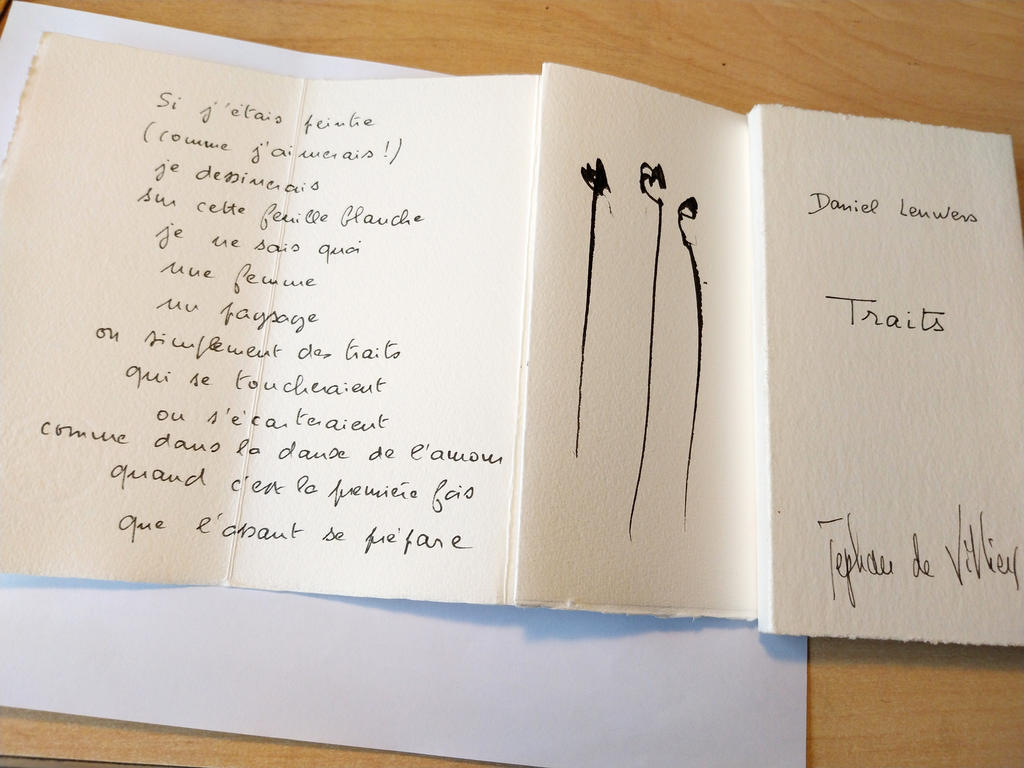 Si j'étais peintre
(comme j'aimerais !)
je dessinerais
sur cette feuille blanche
je ne sais quoi
une femme
un paysage
ou simplement des traits
qui se toucheraient
ou s'écarteraient
comme dans la danse de l'amour
quand c'est la première fois
que l'assaut se prépare
Daniel Leuwers
Traits
de Villiers